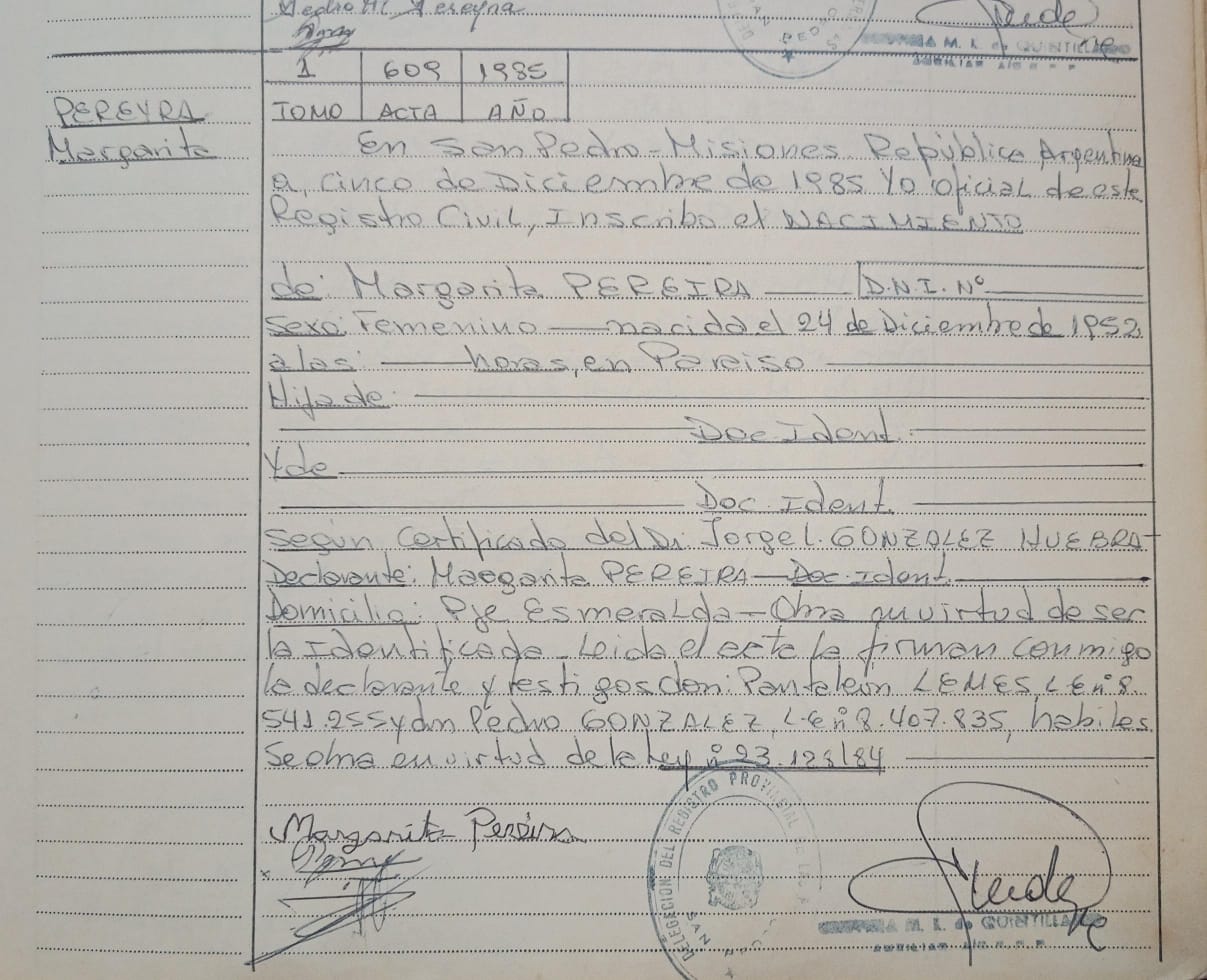 Pedro M. Pereyna
M. L. de QUINTILLADO
AUXILIAR
1 609 1985
TOMO ACTA AÑO
PEREYRA
Margarita
En San Pedro - Misiones República Argentina
a, cinco de Diciembre de 1985 Yo oficial de este
Registro Civil, Inscribo el NACIMIENTO
de: Margarita PEREIRA D.N.I. Nº
Sexo: Femenino nacida el 24 de Diciembre de 1952
a las: horas, en Pareiso
Hija de:
Doc. Ident.
Y de
Doc. Ident.
Según Certificado del Dr. Jorge L. GONZALEZ HUEBRA
Declarante: Margarita PEREIRA - Doc. Ident.
Domicilio: Pje Esmeralda - Obra en virtud de ser
la Identificada. Leida el acta la firman conmigo
la declarante y testigos don: Pantaleón LEMES, L.E nº 8.
541.255 y don Pedro GONZALEZ, L.E nº 8.407.835, habiles.
Se obra en virtud de la Ley nº 23.128/84
Margarita Pereira
DELEGACION DEL REGISTRO PROVINCIAL DE LAS
SAN PEDRO
M. L. de QUINTILLADO
AUXILIAR